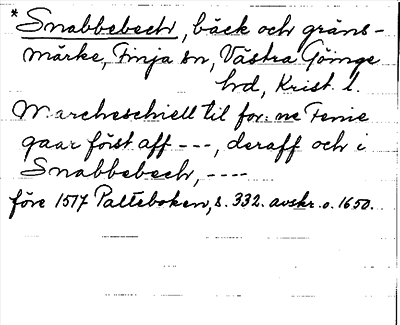 * Snabbebech, bäck och gräns-
märke, Finja sn, Västra Göinge
hd, Krist. l.
Marcheschiell til for:ne Fenie
gaar först aff ---, deraff och i
Snabbebech, ----
före 1517 Palteboken, s. 332. avskr. o. 1650.